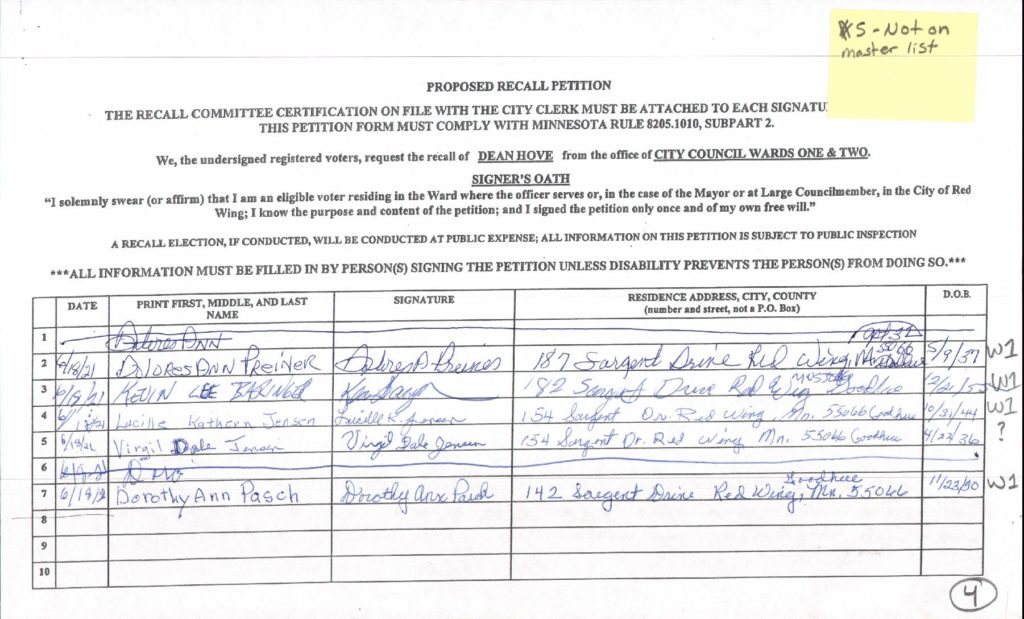 *5 - Not on
master list
PROPOSED RECALL PETITION
THE RECALL COMMITTEE CERTIFICATION ON FILE WITH THE CITY CLERK MUST BE ATTACHED TO EACH SIGNATU
THIS PETITION FORM MUST COMPLY WITH MINNESOTA RULE 8205.1010, SUBPART 2.
We, the undersigned registered voters, request the recall of DEAN HOVE from the office of CITY COUNCIL WARDS ONE & TWO.
SIGNER'S OATH
"I solemnly swear (or affirm) that I am an eligible voter residing in the Ward where the officer serves or, in the case of the Mayor or at Large Councilmember, in the City of Red
Wing; I know the purpose and content of the petition; and I signed the petition only once and of my own free will."
A RECALL ELECTION, IF CONDUCTED, WILL BE CONDUCTED AT PUBLIC EXPENSE; ALL INFORMATION ON THIS PETITION IS SUBJECT TO PUBLIC INSPECTION
***ALL INFORMATION MUST BE FILLED IN BY PERSON(S) SIGNING THE PETITION UNLESS DISABILITY PREVENTS THE PERSON(S) FROM DOING SO.***
DATE PRINT FIRST, MIDDLE, AND LAST NAME SIGNATURE RESIDENCE ADDRESS, CITY, COUNTY (number and street, not a P.O. Box) D.O.B.
1 Delores Ann
2 DELORES ANN PREINER 187 Sargent Drive Red Wing, Mn 5/9/37 W1
3 KEVIN LEE 182 Sargent Drive Red Wing Goodhue W1
4 Lucille Kathern Jensen Lucille K. Jensen 154 Sargent Dr. Red Wing Mn. 55066 Goodhue 10/31/44 W1
5 Virgil Dale Jensen Virgil Dale Jensen 154 Sargent Dr. Red Wing Mn. 55066 Goodhue 4/23/36 ?
6
7 Dorothy Ann Pasch Dorothy Ann Pasch 142 Sargent Drive Red Wing, Goodhue Mn. 55066 11/23/30 W1
8
9
10
4